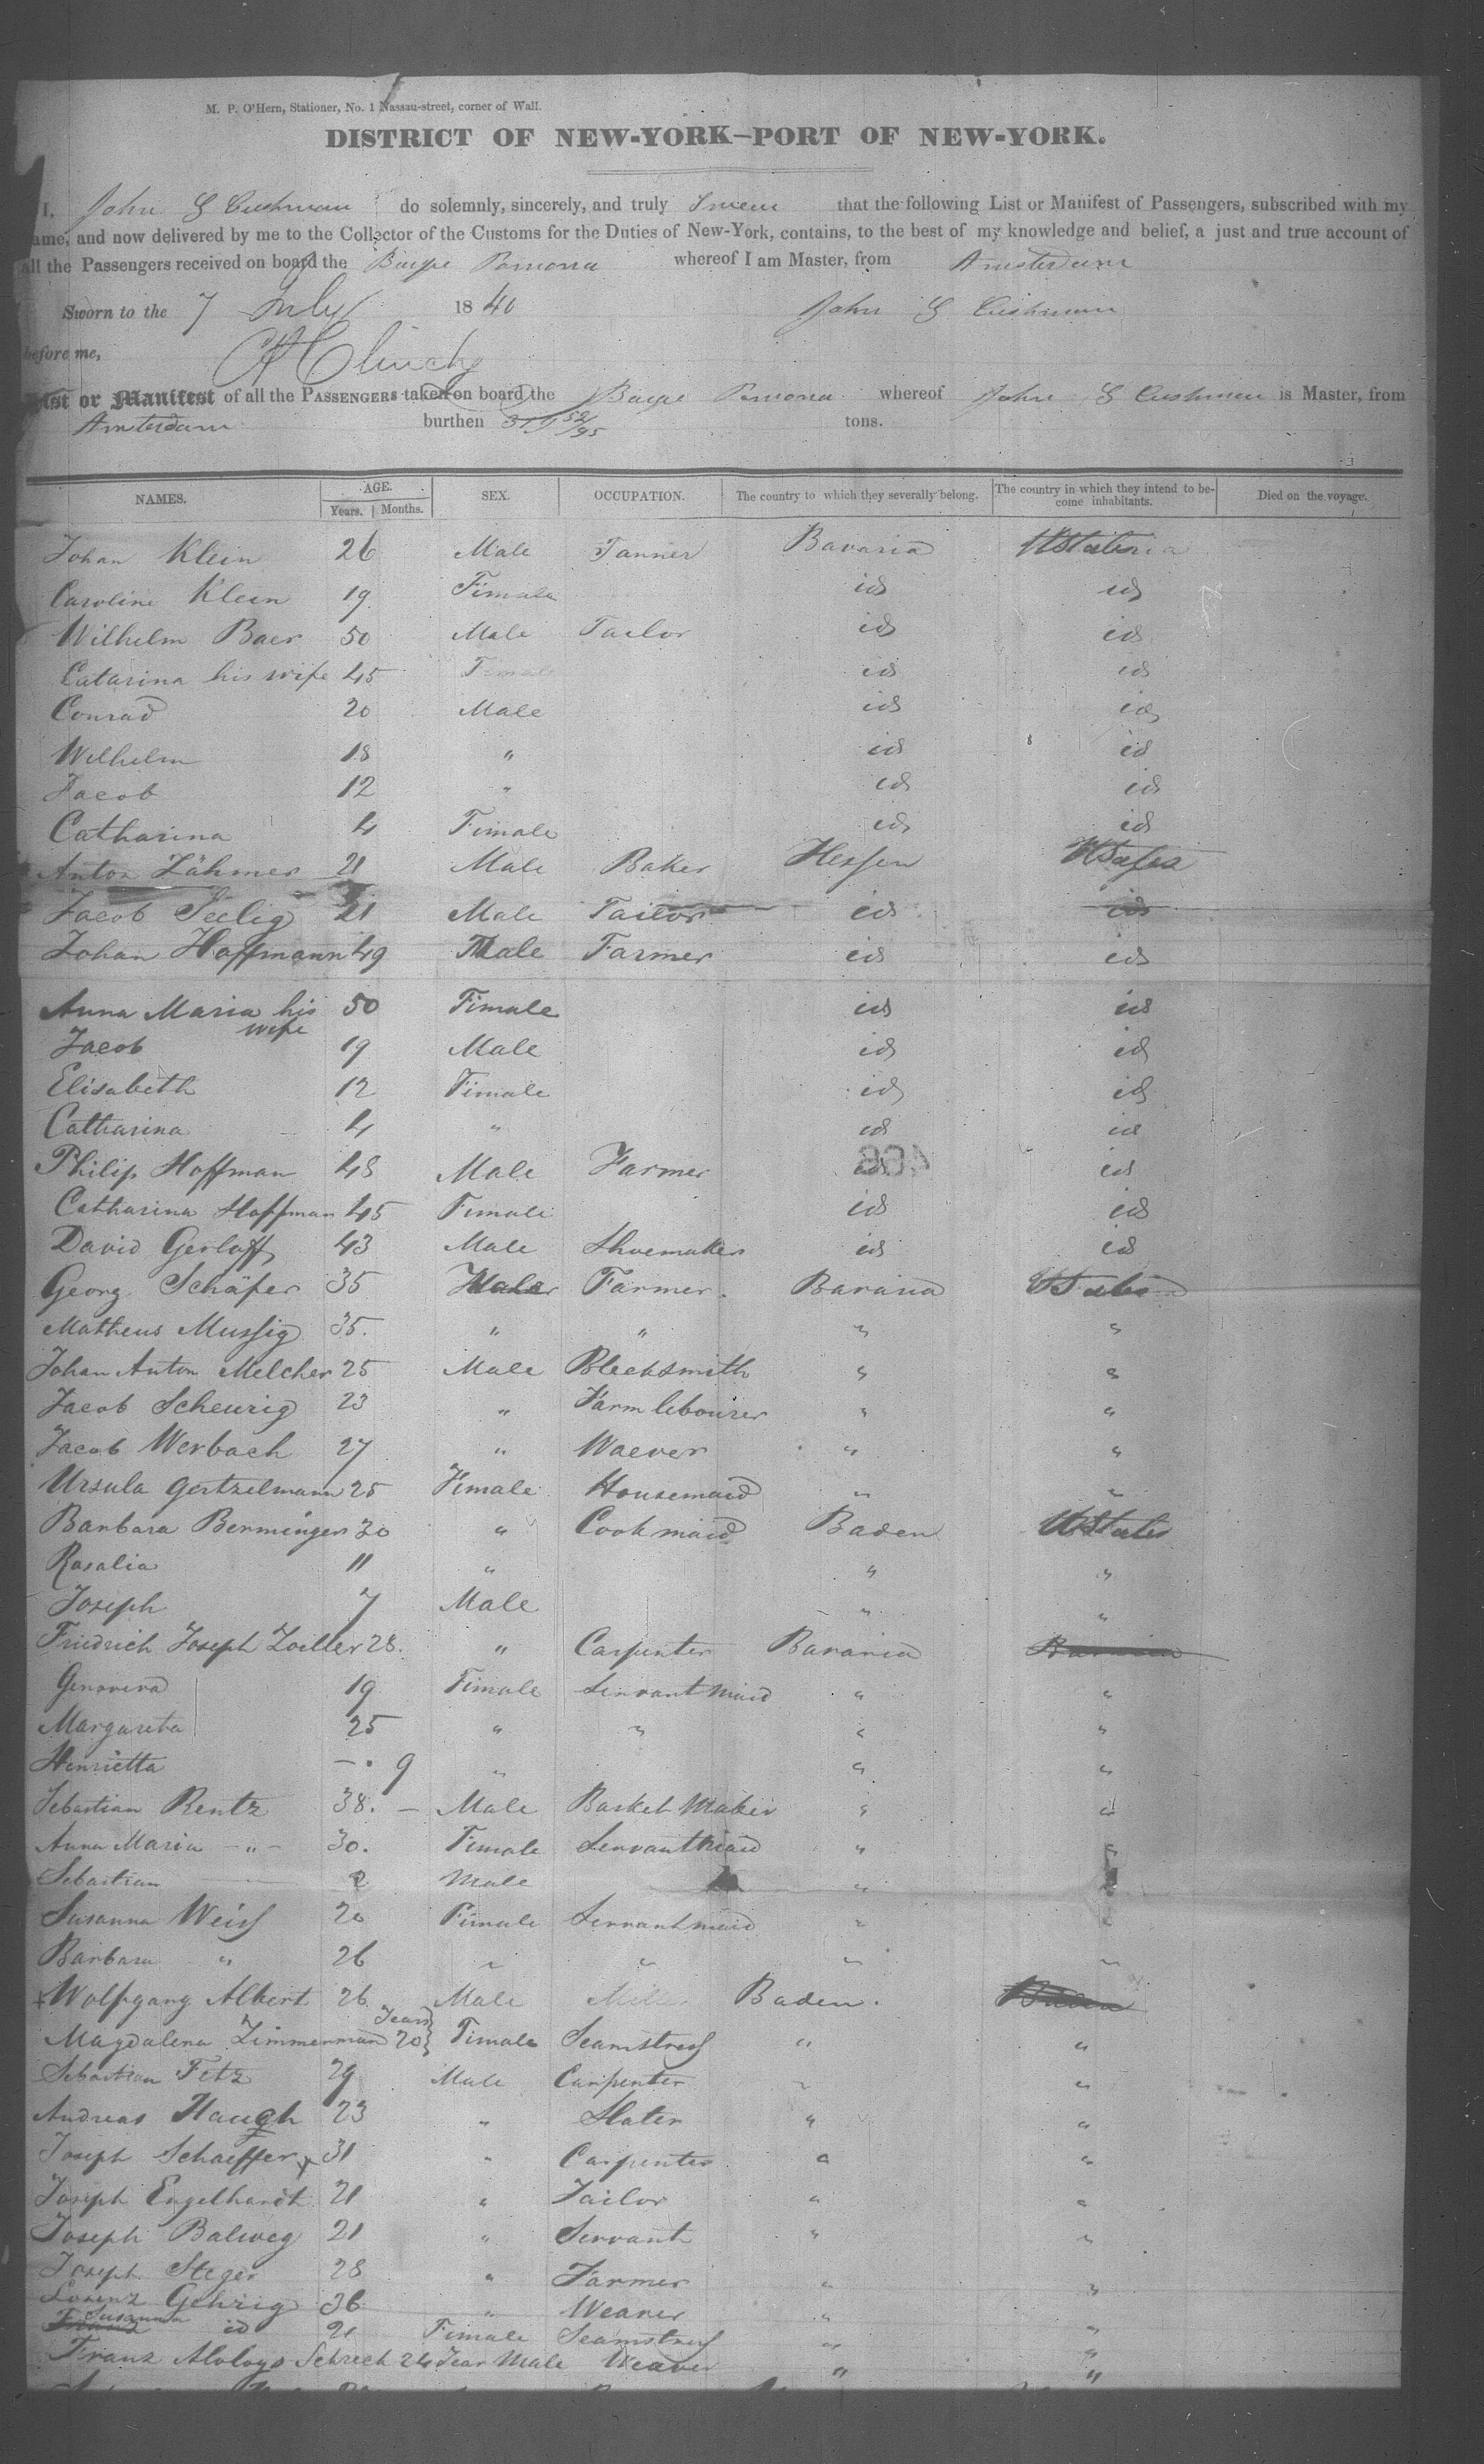 M. P. O'Hern, Stationer, No. 1 Nassau-street, corner of Wall.
DISTRICT OF NEW-YORK—PORT OF NEW-YORK.
I, John G Cushman do solemnly, sincerely, and truly Swear that the following List or Manifest of Passengers, subscribed with my
ame, and now delivered by me to the Collector of the Customs for the Duties of New-York, contains, to the best of my knowledge and belief, a just and true account of
all the Passengers received on board the Barque Pomona whereof I am Master, from Amsterdam
Sworn to the 7 July 1840 John G Cushman
before me,
List or Manifest of all the PASSENGERS taken on board the Barque Pomona whereof John G Cushman is Master, from
Amsterdam burthen 52/95 tons.
NAMES. AGE. Years. Months. SEX. OCCUPATION. The country to which they severally belong. The country in which they intend to become inhabitants. Died on the voyage.
Johan Klein 26 Male Tanner Bavaria UStates
Caroline Klein 19 Fimale id id
Wilhelm Baer 50 Male Tailor id id
Catarina his wife 45 Female id id
Conrad 20 Male id id
Wilhelm 18 " id id
Jacob 12 " id id
Catharina 4 Fimale id id
Anton Zähmer 21 Male Baker Hessen UStates
Jacob Seelig 21 Male Tailor id id
Johan Hoffmann 49 Male Farmer id id
Anna Maria his wife 50 Fimale id id
Jacob 19 Male id id
Elisabeth 12 Fimale id id
Catharina 4 " id id
Philip Hoffman 48 Male Farmer id id
Catharina Hoffman 45 Fimale id id
David Gerloff 43 Male Shoemaker id id
Georg Schäfer 35 Male Farmer. Bavaria UStates
Matheus Mussig 35. " " " "
Johan Anton Melcher 25 Male Blecksmith " "
Jacob Scheurig 23 " Farm lebourer " "
Jacob Werbach 27 " Waever " "
Ursula Gertzelmann 25 Fimale Housemaid " "
Barbara Berminger 30 " Cookmaid Baden UStates
Rosalia 11 " " "
Joseph 7 Male " "
Friedrich Joseph Zoeller 28. " Carpenter Bavaria Bavaria
Genovera 19 Fimale Servant maid " "
Margareta 25 " " " "
Henrietta — 9 " " "
Sebastian Rentz 38. — Male Basket Maker " "
Anna Maria —"— 30. Fimale Servantmaid " "
Sebastian 2 Male " "
Susanna Weiss 20 Fimale Servantmaid " "
Barbara " 26 " " " "
+Wolfgang Albert 26 Male Baden.
Magdalena Zimmerman 20 Years Fimale Seamstress " "
Sebastian Fetz 29 Male Carpenter " "
Andreas Haugh 23 " Slater " "
Joseph Schaeffer 31 " Carpenter " "
Joseph Engelhardt 21 " Tailor " "
Joseph Balweg 21 " Servant " "
Joseph Steger 28 " Farmer " "
Lorenz Gehrig 36 " Weaver " "
Susanna id 21 Fimale Seamstress " "
Franz Aloloys Schreck 24 Year Male Weaver " "